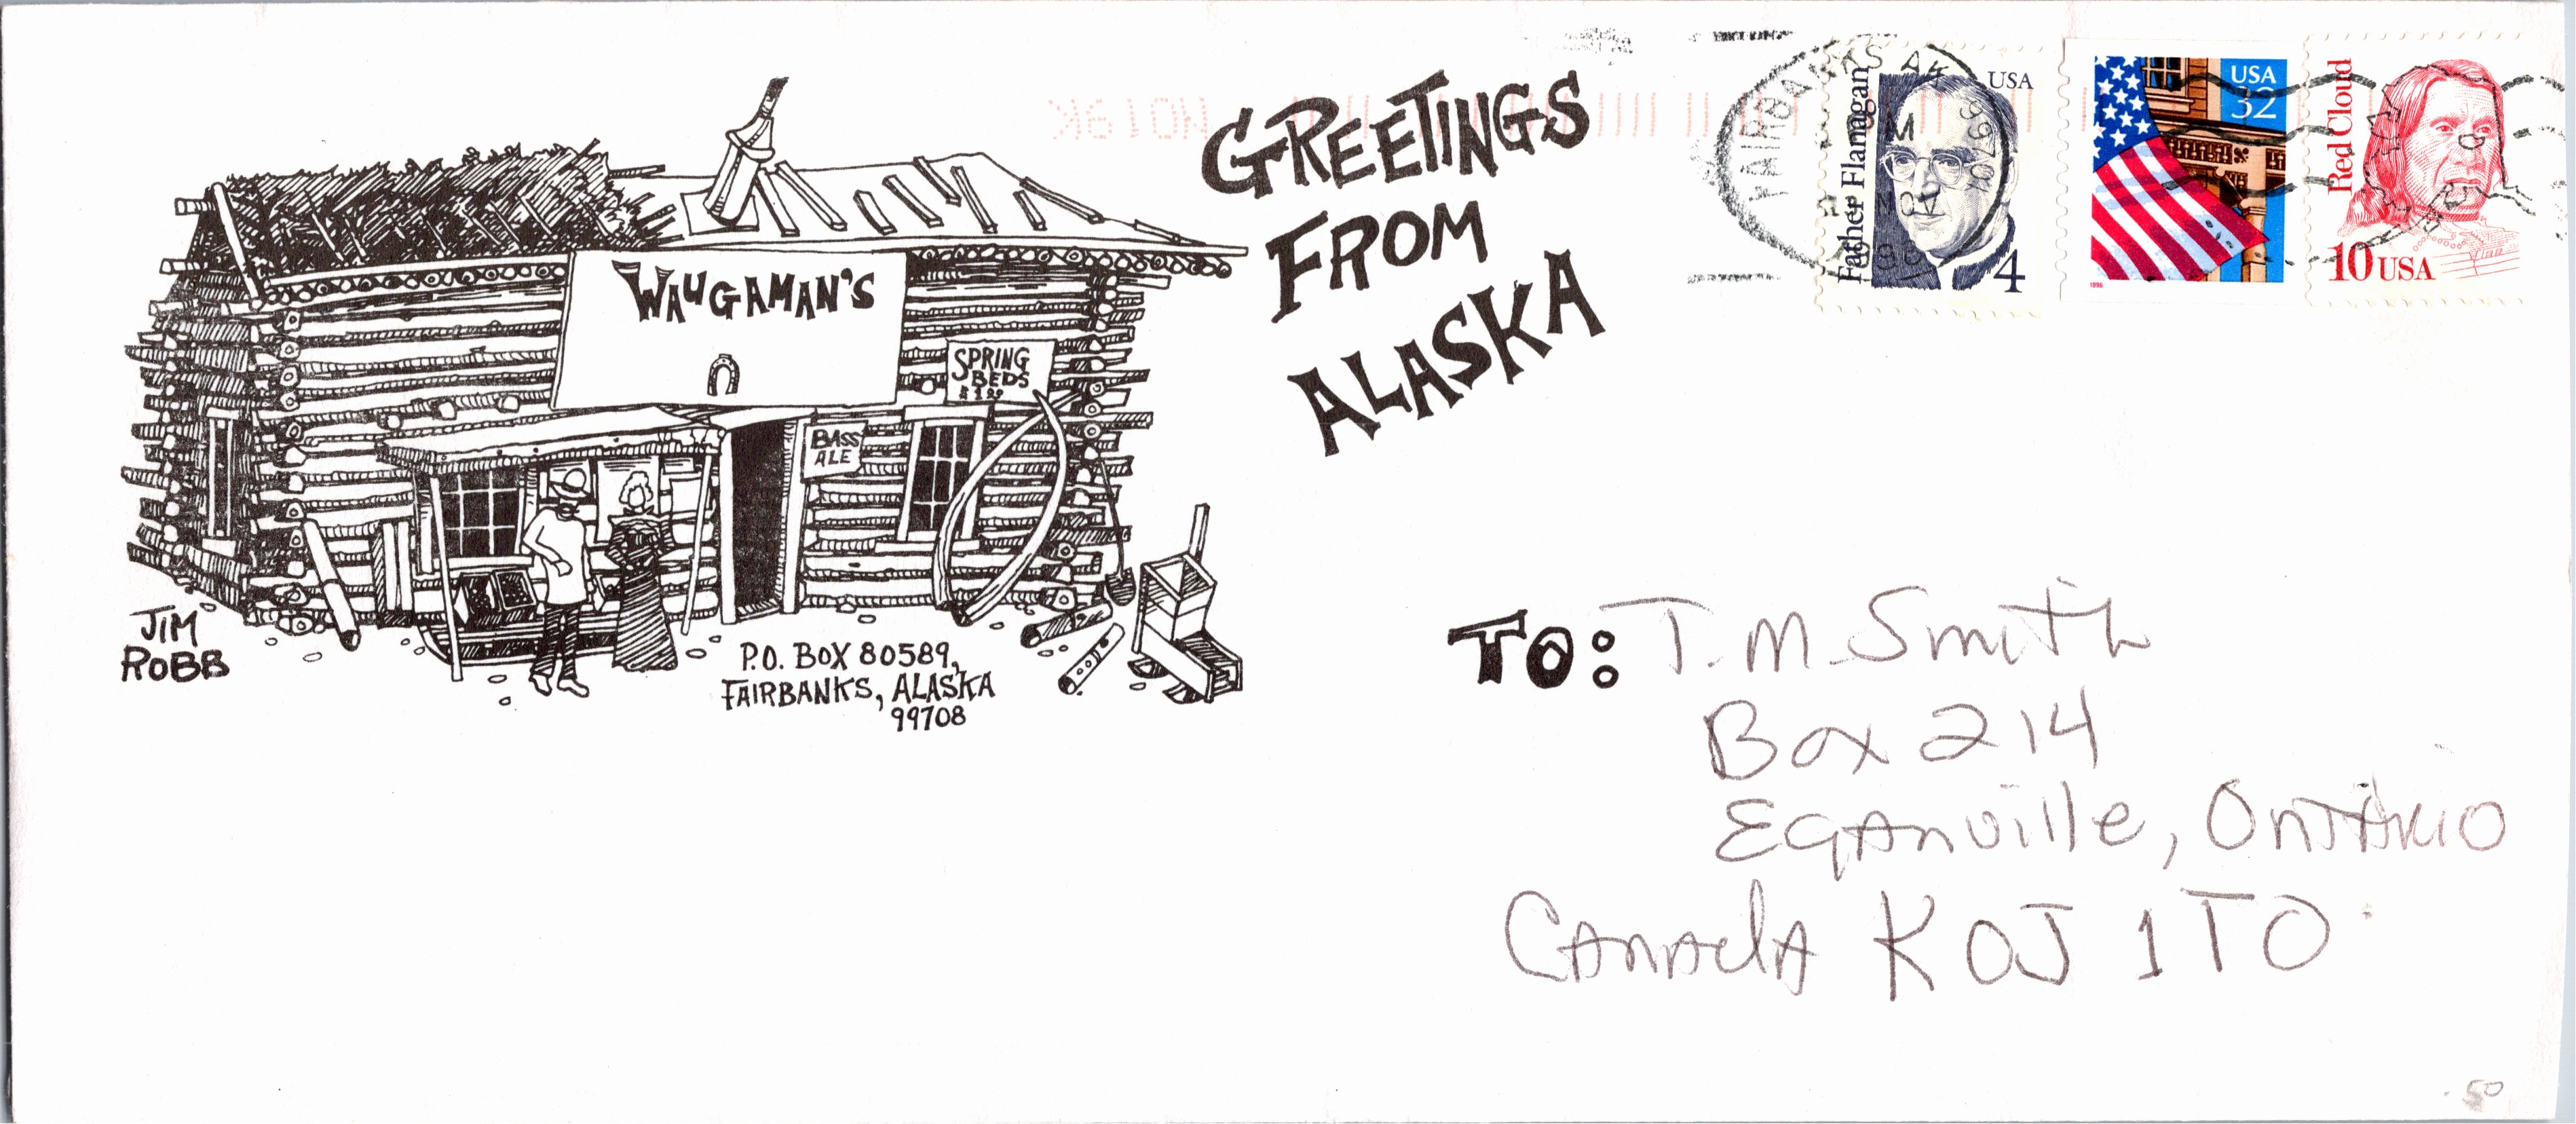 GREETINGS
FROM
ALASKA
WAUGAMAN'S
SPRING
BEDS
BASS
ALE
JIM
ROBB
P.O. BOX 80589,
FAIRBANKS, ALASKA
99708
FAIRBANKS AK 99701
NOV
Father Flanagan
USA
4
USA
32
1996
Red Cloud
10 USA
TO: T. M. Smith
Box 214
EgAnville, OntArio
CAnAdA K0J 1T0
.50